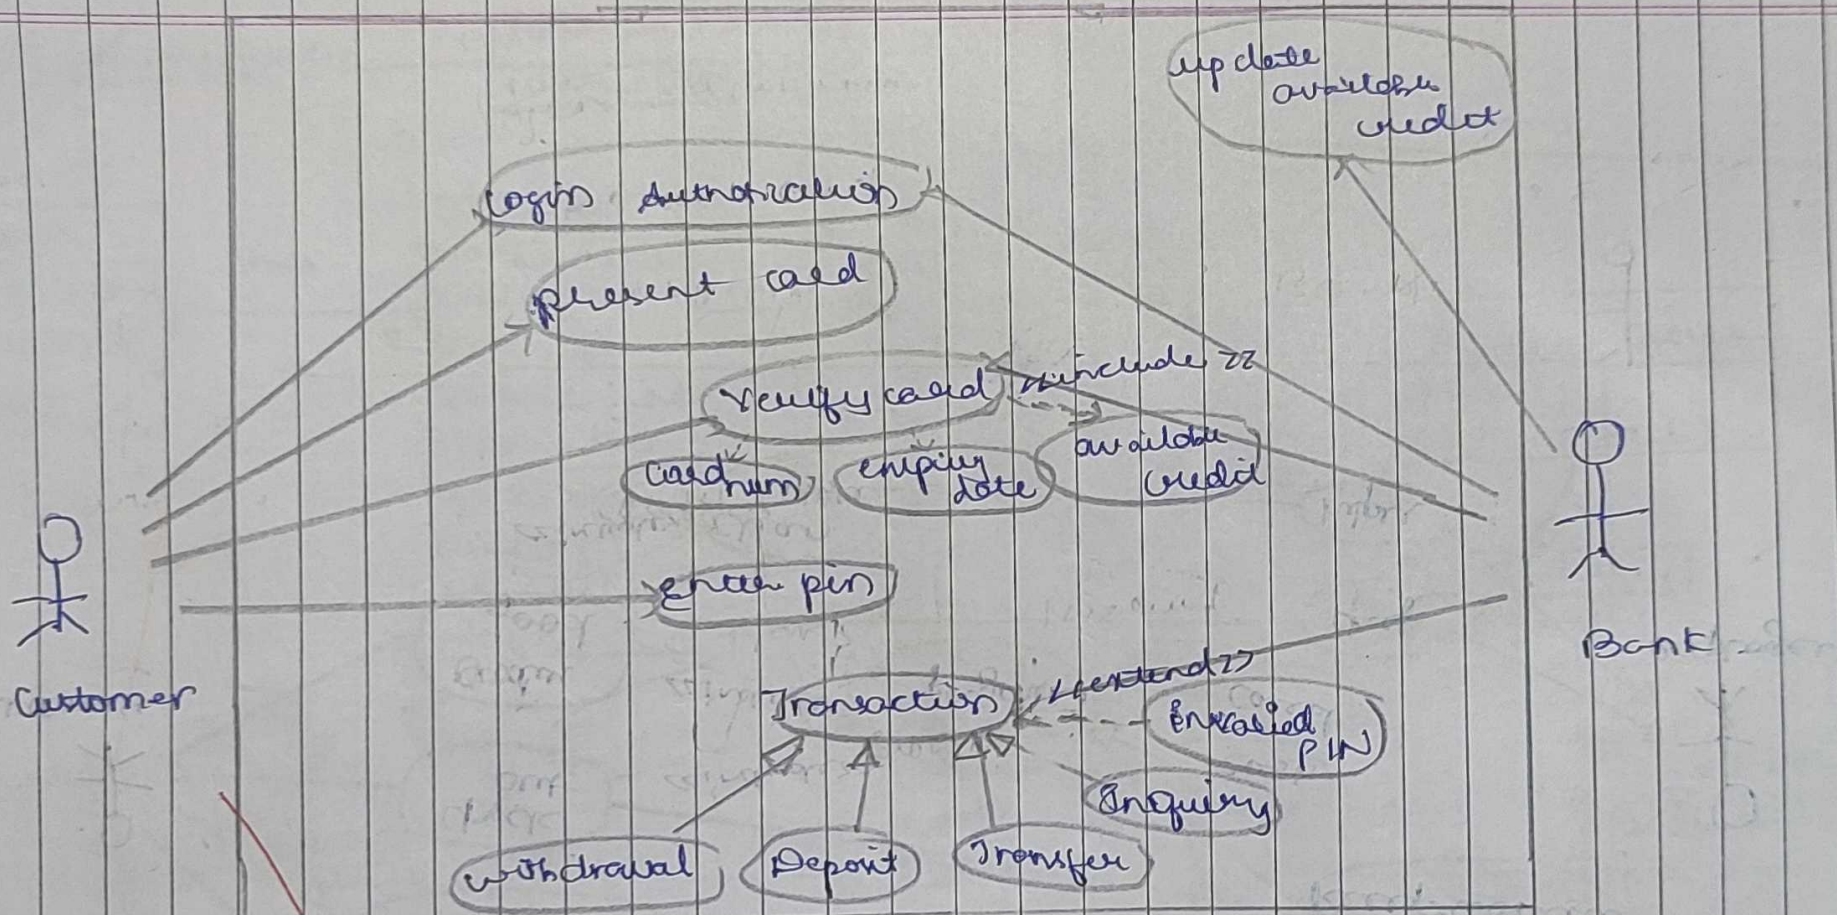 update
available
credit
Login Authorization
Present card
Verify card
<<include>>
Card
num
expiry
date
available
credit
Enter pin
Customer
Bank
Transaction
<<extend>>
Invalid
PIN
Enquiry
Withdrawal
Deposit
Transfer